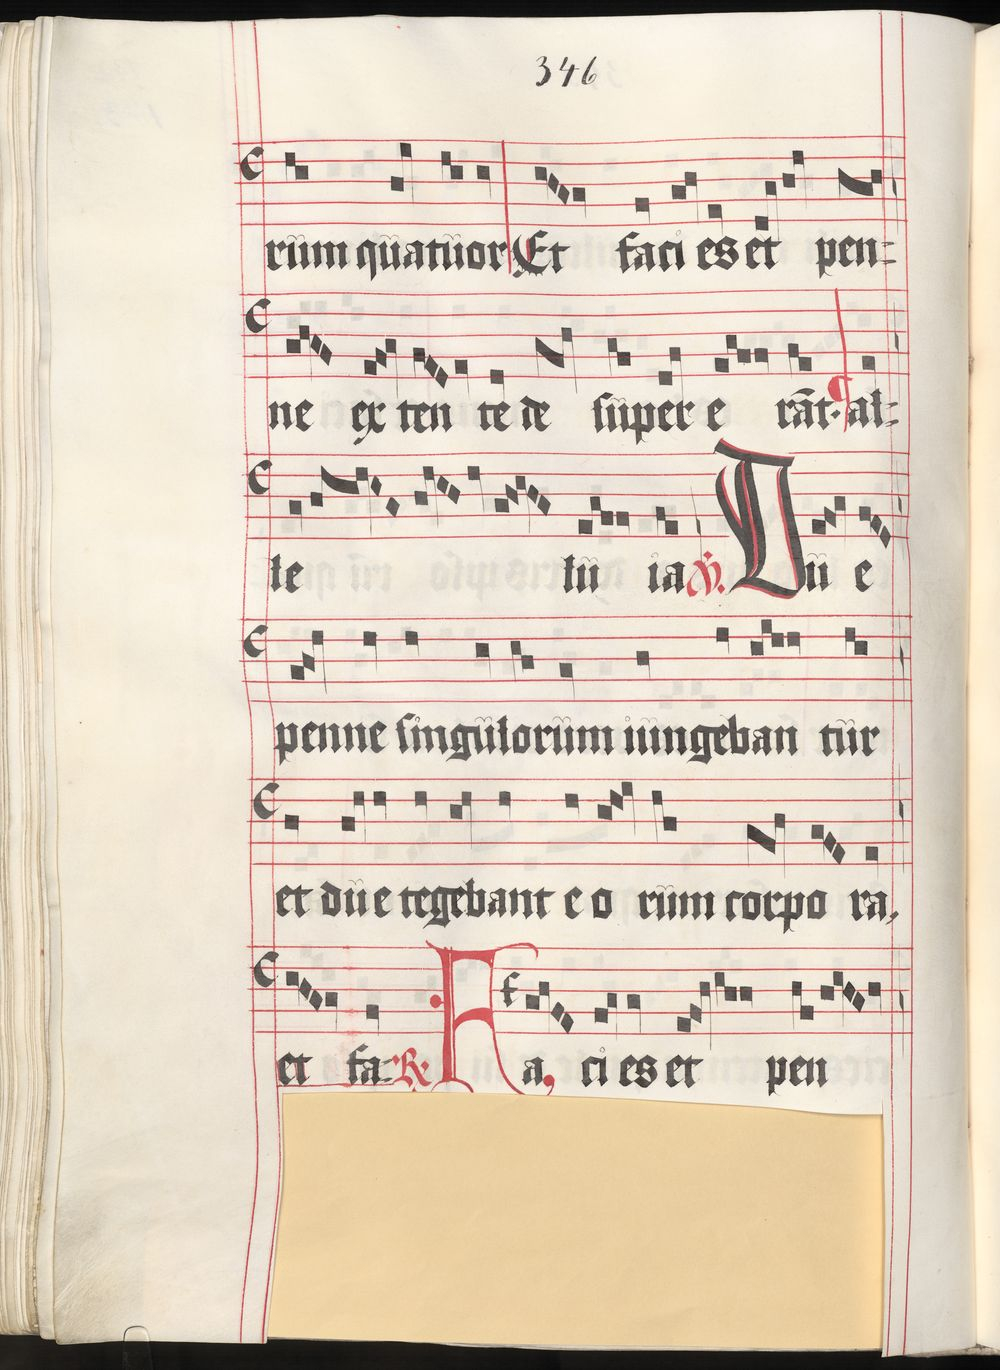 346
rum quatuor Et faci es et pen-
ne ex ten te de super e rāt. al-
le lu ia ℣. Du e
penne singulorum iungeban tur
et due tegebant e o rum corpo ra,
et fa. ℟. Fa, ci es et pen